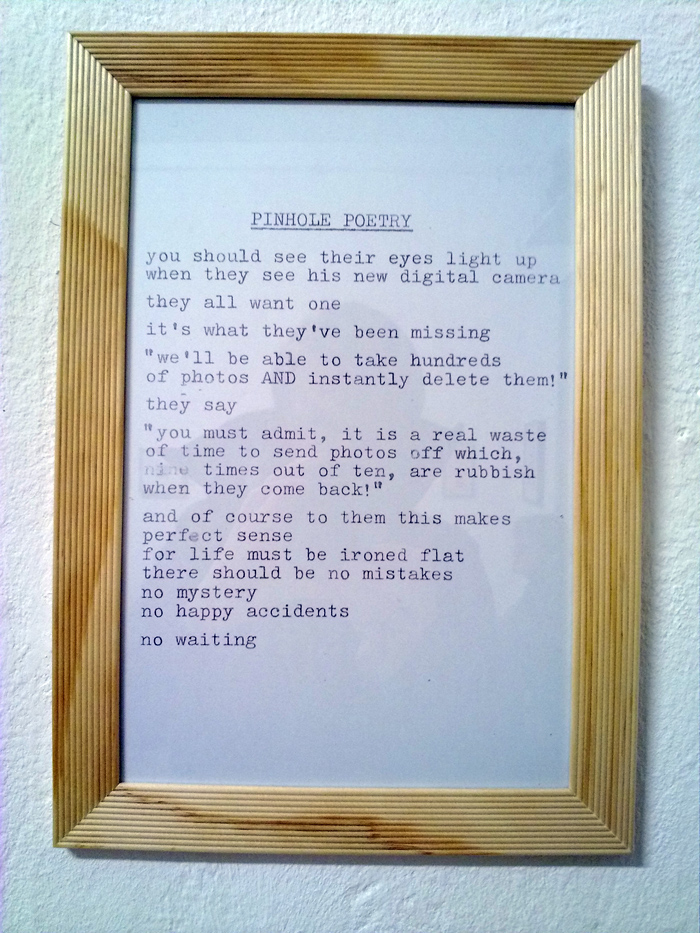 PINHOLE POETRY
you should see their eyes light up
when they see his new digital camera
they all want one
it's what they've been missing
"we'll be able to take hundreds
of photos AND instantly delete them!"
they say
"you must admit, it is a real waste
of time to send photos off which,
nine times out of ten, are rubbish
when they come back!"
and of course to them this makes
perfect sense
for life must be ironed flat
there should be no mistakes
no mystery
no happy accidents
no waiting